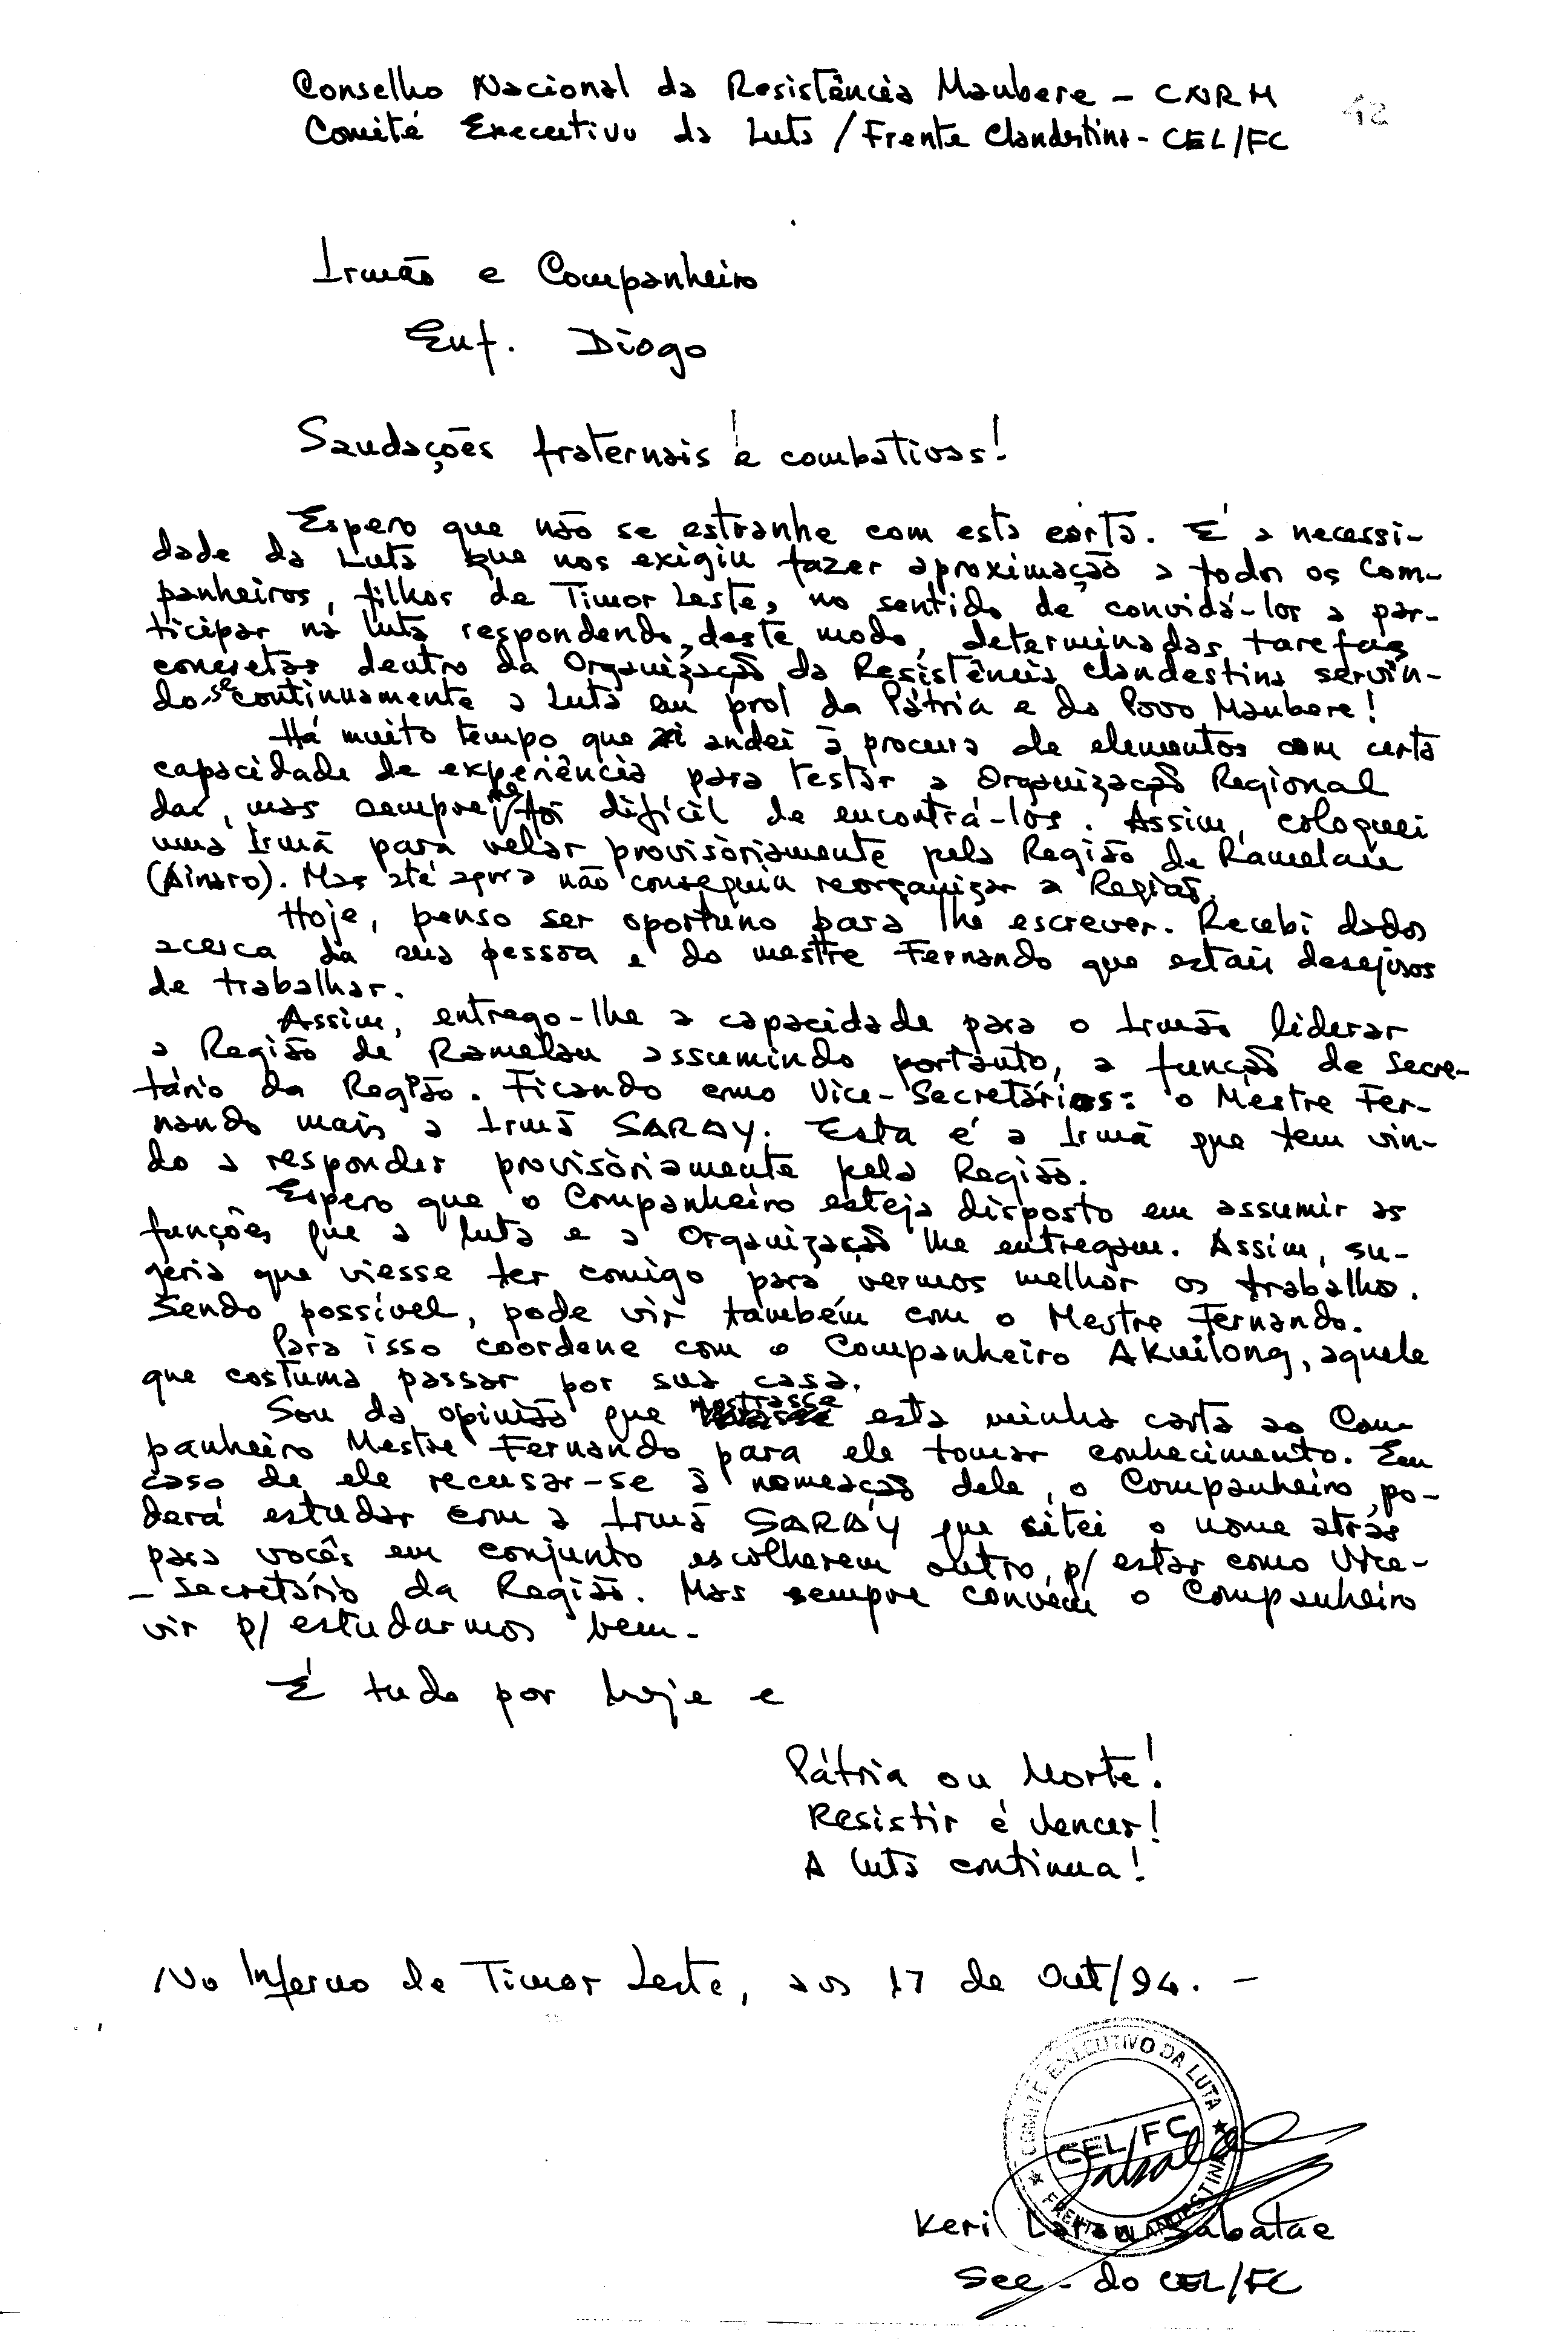 Conselho Nacional da Resistência Maubere - CNRM
42
Comité Executivo da Luta / Frente Clandestina - CEL/FC
Irmão e Companheiro
Enf. Diogo
Saudações fraternais e combativas!
Espero que não se estranhe com esta carta. É a necessi-
dade da Luta que nos exigiu fazer aproximação a todos os Com-
panheiros, filhos de Timor Leste, no sentido de convidá-los a par-
ticipar na luta respondendo, deste modo, determinadas tarefas
concretas dentro da Organização da Resistência Clandestina servin-
do-se continuamente a Luta em prol da Pátria e do Povo Maubere!
Há muito tempo que andei à procura de elementos com certa
capacidade de experiência para testar a Organização Regional
daí, mas sempre me foi difícil de encontrá-los. Assim, coloquei
uma Irmã para velar provisòriamente pela Região de Ramelau
(Ainaro). Mas até agora não conseguiu reorganizar a Região.
Hoje, penso ser oportuno para lhe escrever. Recebi dados
acerca da sua pessoa e do mestre Fernando que estais desejosos
de trabalhar.
Assim, entrego-lhe a capacidade para o Irmão liderar
a Região de Ramelau assumindo portanto, a função de Secre-
tário da Região. Ficando como Vice-Secretários: o Mestre Fer-
nando mais a Irmã SARAY. Esta é a Irmã que tem vin-
do a responder provisòriamente pela Região.
Espero que o Companheiro esteja disposto em assumir as
funções que a luta e a Organização lhe entregam. Assim, su-
geria que viesse ter comigo para vermos melhor os trabalho.
Sendo possível, pode vir também com o Mestre Fernando.
Para isso coordene com o Companheiro Akuilong, aquele
que costuma passar por sua casa.
Sou da opinião que mostrasse esta minha carta ao Com-
panheiro Mestre Fernando para ele tomar conhecimento. Em
caso de ele recusar-se à nomeação dele, o Companheiro po-
derá estudar com a Irmã SARAY que sitei o nome atrás
para vocês em conjunto escolherem outro p/ estar como Vice-
- Secretário da Região. Mas sempre convém o Companheiro
vir p/ estudarmos bem.
É tudo por hoje e
Pátria ou Morte!
Resistir é Vencer!
A luta continua!
No Inferno de Timor Leste, aos 17 de Out/94. -
COMITÉ EXECUTIVO DA LUTA
CEL/FC
FRENTE CLANDESTINA
Keri Laran Sabalae
Sec. do CEL/FC